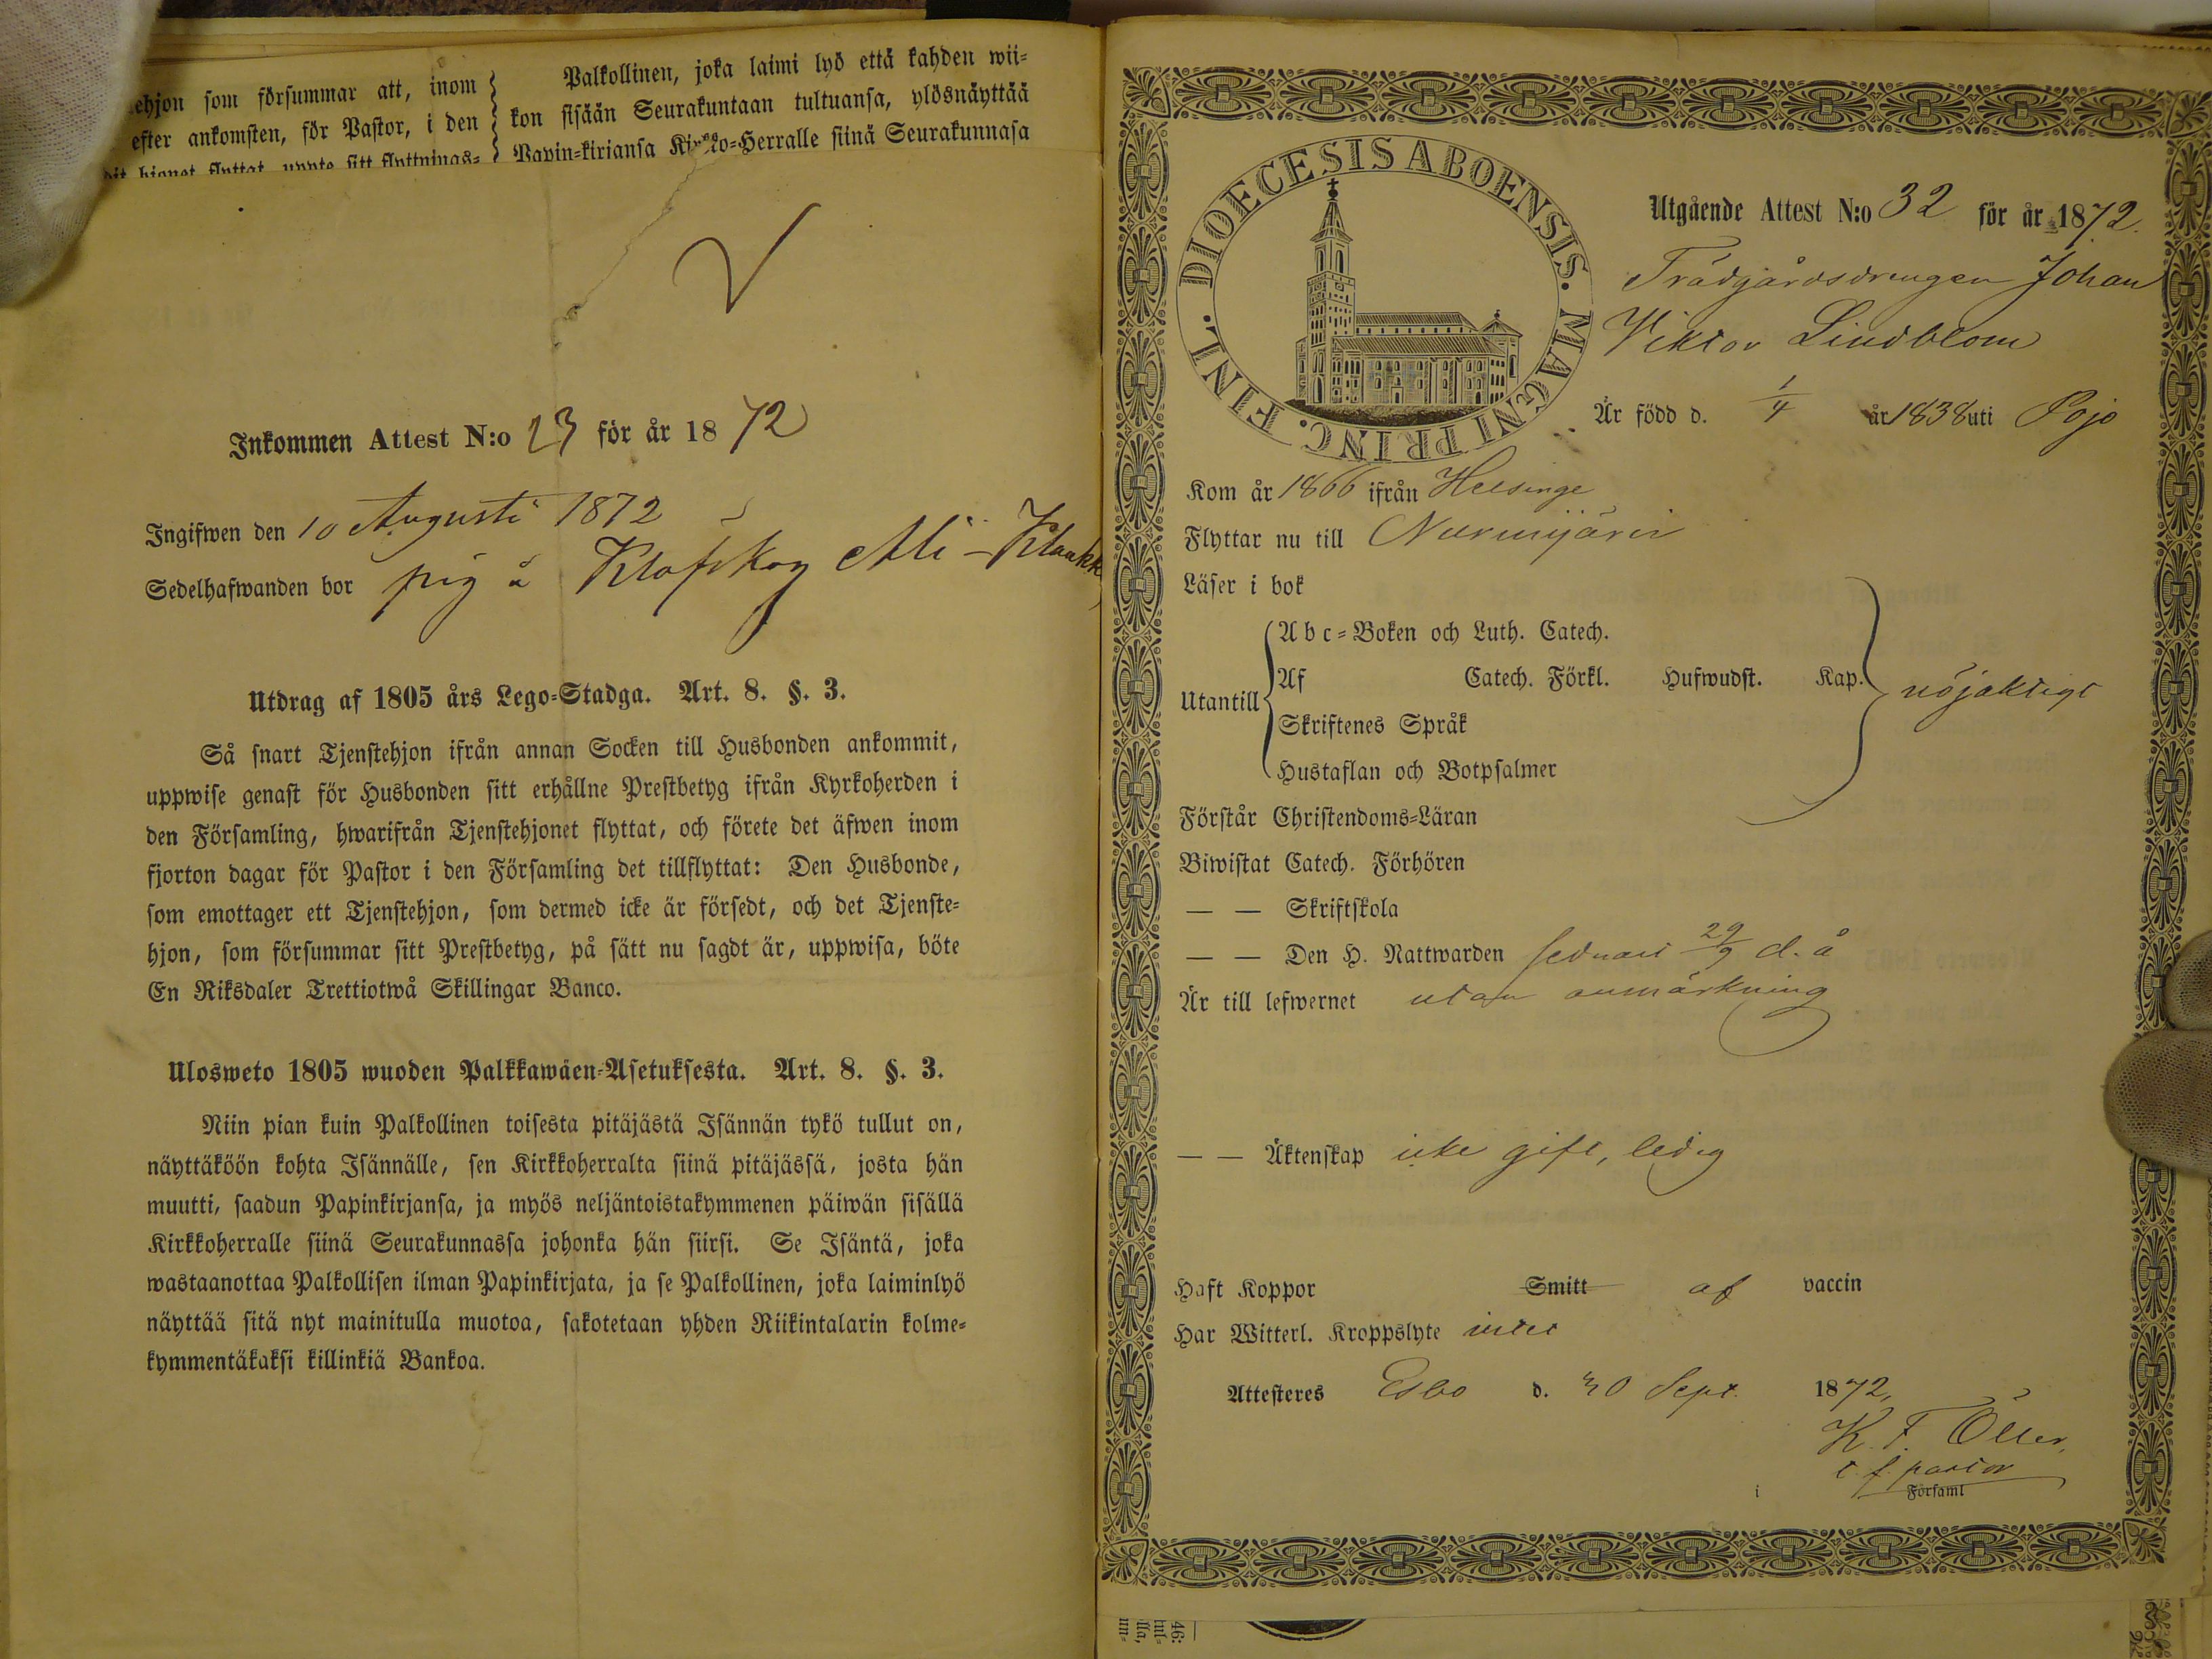 ehjon som försummar att, inom
efter ankomsten, för Pastor, i den
hjonet flyttat, uppte sitt flyttnings=
Palkollinen, joka laimi lyö että kahden wii=
kon sisään Seurakuntaan tultuansa, ylösnäyttää
Papin=kirjansa Kirkko=Herralle siinä Seurakunnasa
Inkommen Attest N:o 23 för år 1872
Ingifwen den 10 Augusti 1872
Sedelhafwanden bor pig å Klofskog Ali-Klaukk
Utdrag af 1805 års Lego=Stadga. Art. 8. §. 3.
Så snart Tjenstehjon ifrån annan Socken till Husbonden ankommit,
uppwise genast för Husbonden sitt erhållne Prestbetyg ifrån Kyrkoherden i
den Församling, hwarifrån Tjenstehjonet flyttat, och förete det äfwen inom
fjorton dagar för Pastor i den Församling det tillflyttat: Den Husbonde,
som emottager ett Tjenstehjon, som dermed icke är försedt, och det Tjenste=
hjon, som försummar sitt Prestbetyg, på sätt nu sagdt är, uppwisa, böte
En Riksdaler Trettiotwå Skillingar Banco.
Ulosweto 1805 wuoden Palkkawäen=Asetuksesta. Art. 8. §. 3.
Niin pian kuin Palkollinen toisesta pitäjästä Isännän tykö tullut on,
näyttäköön kohta Isännälle, sen Kirkkoherralta siinä pitäjässä, josta hän
muutti, saadun Papinkirjansa, ja myös neljäntoistakymmenen päiwän sisällä
Kirkkoherralle siinä Seurakunnassa johonka hän siirsi. Se Isäntä, joka
wastaanottaa Palkollisen ilman Papinkirjata, ja se Palkollinen, joka laiminlyö
näyttää sitä nyt mainitulla muotoa, sakotetaan yhden Riikintalarin kolme=
kymmentäkaksi killinkiä Bankoa.
FINL. DIOECESIS ABOENSIS. MAGNI PRINC.
Utgående Attest N:o 32 för år 1872.
Trädgårdsdrengen Johan
Viktor Lindblom
Är född d. 1/4 år 1838 uti Pojo
Kom år 1866 ifrån Helsinge
Flyttar nu till Nurmijärvi
Läser i bok
Utantill
Abc=Boken och Luth. Catech.
Af Catech. Förkl. Hufwudst. Kap.
Skriftenes Språk
Hustaflan och Botpsalmer
nöjaktigt
Förstår Christendoms=Läran
Biwistat Catech. Förhören
— — Skriftskola
— — Den H. Nattwarden sednast 29/9 d. å
Är till lefwernet utan anmärkning
— — Äktenskap icke gift, ledig
Haft Koppor Smitt af vaccin
Har Witterl. Kroppslyte intet
Attesteres Esbo d. 30 Sept. 1872,
K. F. Öller,
t. f. pastor
i Församl
46: